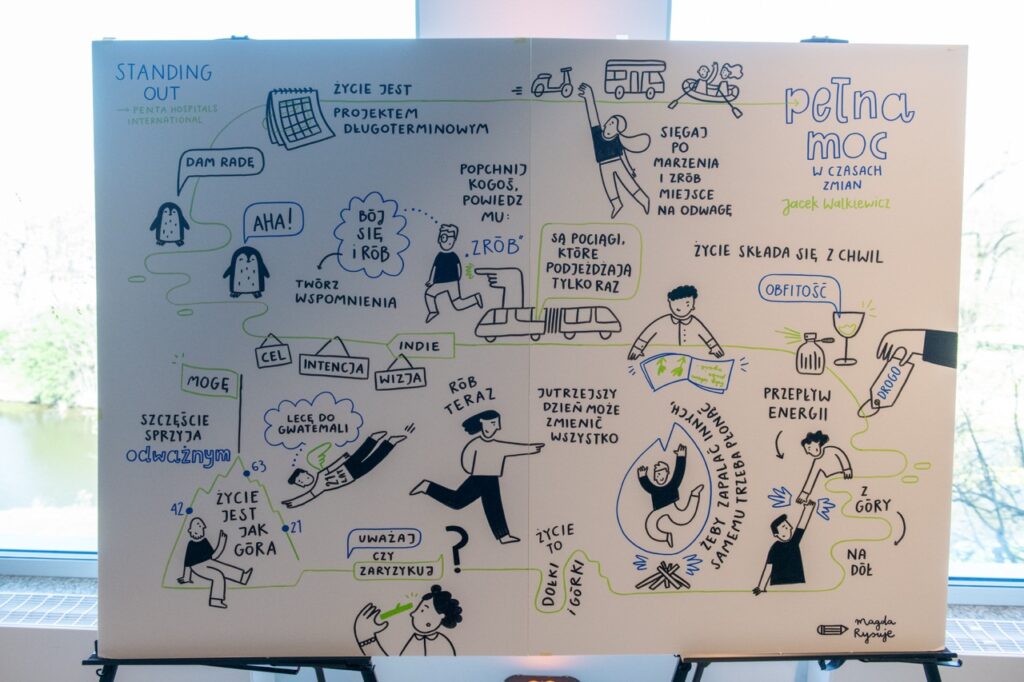 STANDING
OUT
→ PENTA HOSPITALS
INTERNATIONAL
ŻYCIE JEST
PROJEKTEM
DŁUGOTERMINOWYM
pełna
moc
W CZASACH
ZMIAN
Jacek Walkiewicz
SIĘGAJ
PO
MARZENIA
I ZRÓB
MIEJSCE
NA ODWAGĘ
DAM RADĘ
AHA!
BÓJ
SIĘ
I RÓB
TWÓRZ
WSPOMNIENIA
POPCHNIJ
KOGOŚ,
POWIEDZ
MU:
„ZRÓB"
SĄ POCIĄGI,
KTÓRE
PODJEŻDŻAJĄ
TYLKO RAZ
ŻYCIE SKŁADA SIĘ Z CHWIL
OBFITOŚĆ
DROGO
CEL
INTENCJA
WIZJA
INDIE
MOGĘ
SZCZĘŚCIE
SPRZYJA
odważnym
63
42
21
ŻYCIE
JEST
JAK
GÓRA
LECĘ DO
GWATEMALI
RÓB
TERAZ
JUTRZEJSZY
DZIEŃ MOŻE
ZMIENIĆ
WSZYSTKO
ŻEBY ZAPALAĆ INNYCH,
SAMEMU TRZEBA PŁONĄĆ
PRZEPŁYW
ENERGII
Z
GÓRY
NA
DÓŁ
UWAŻAJ
CZY
ZARYZYKUJ
?
ŻYCIE
TO
DOŁKI
I GÓRKI
Magda
Rysuje